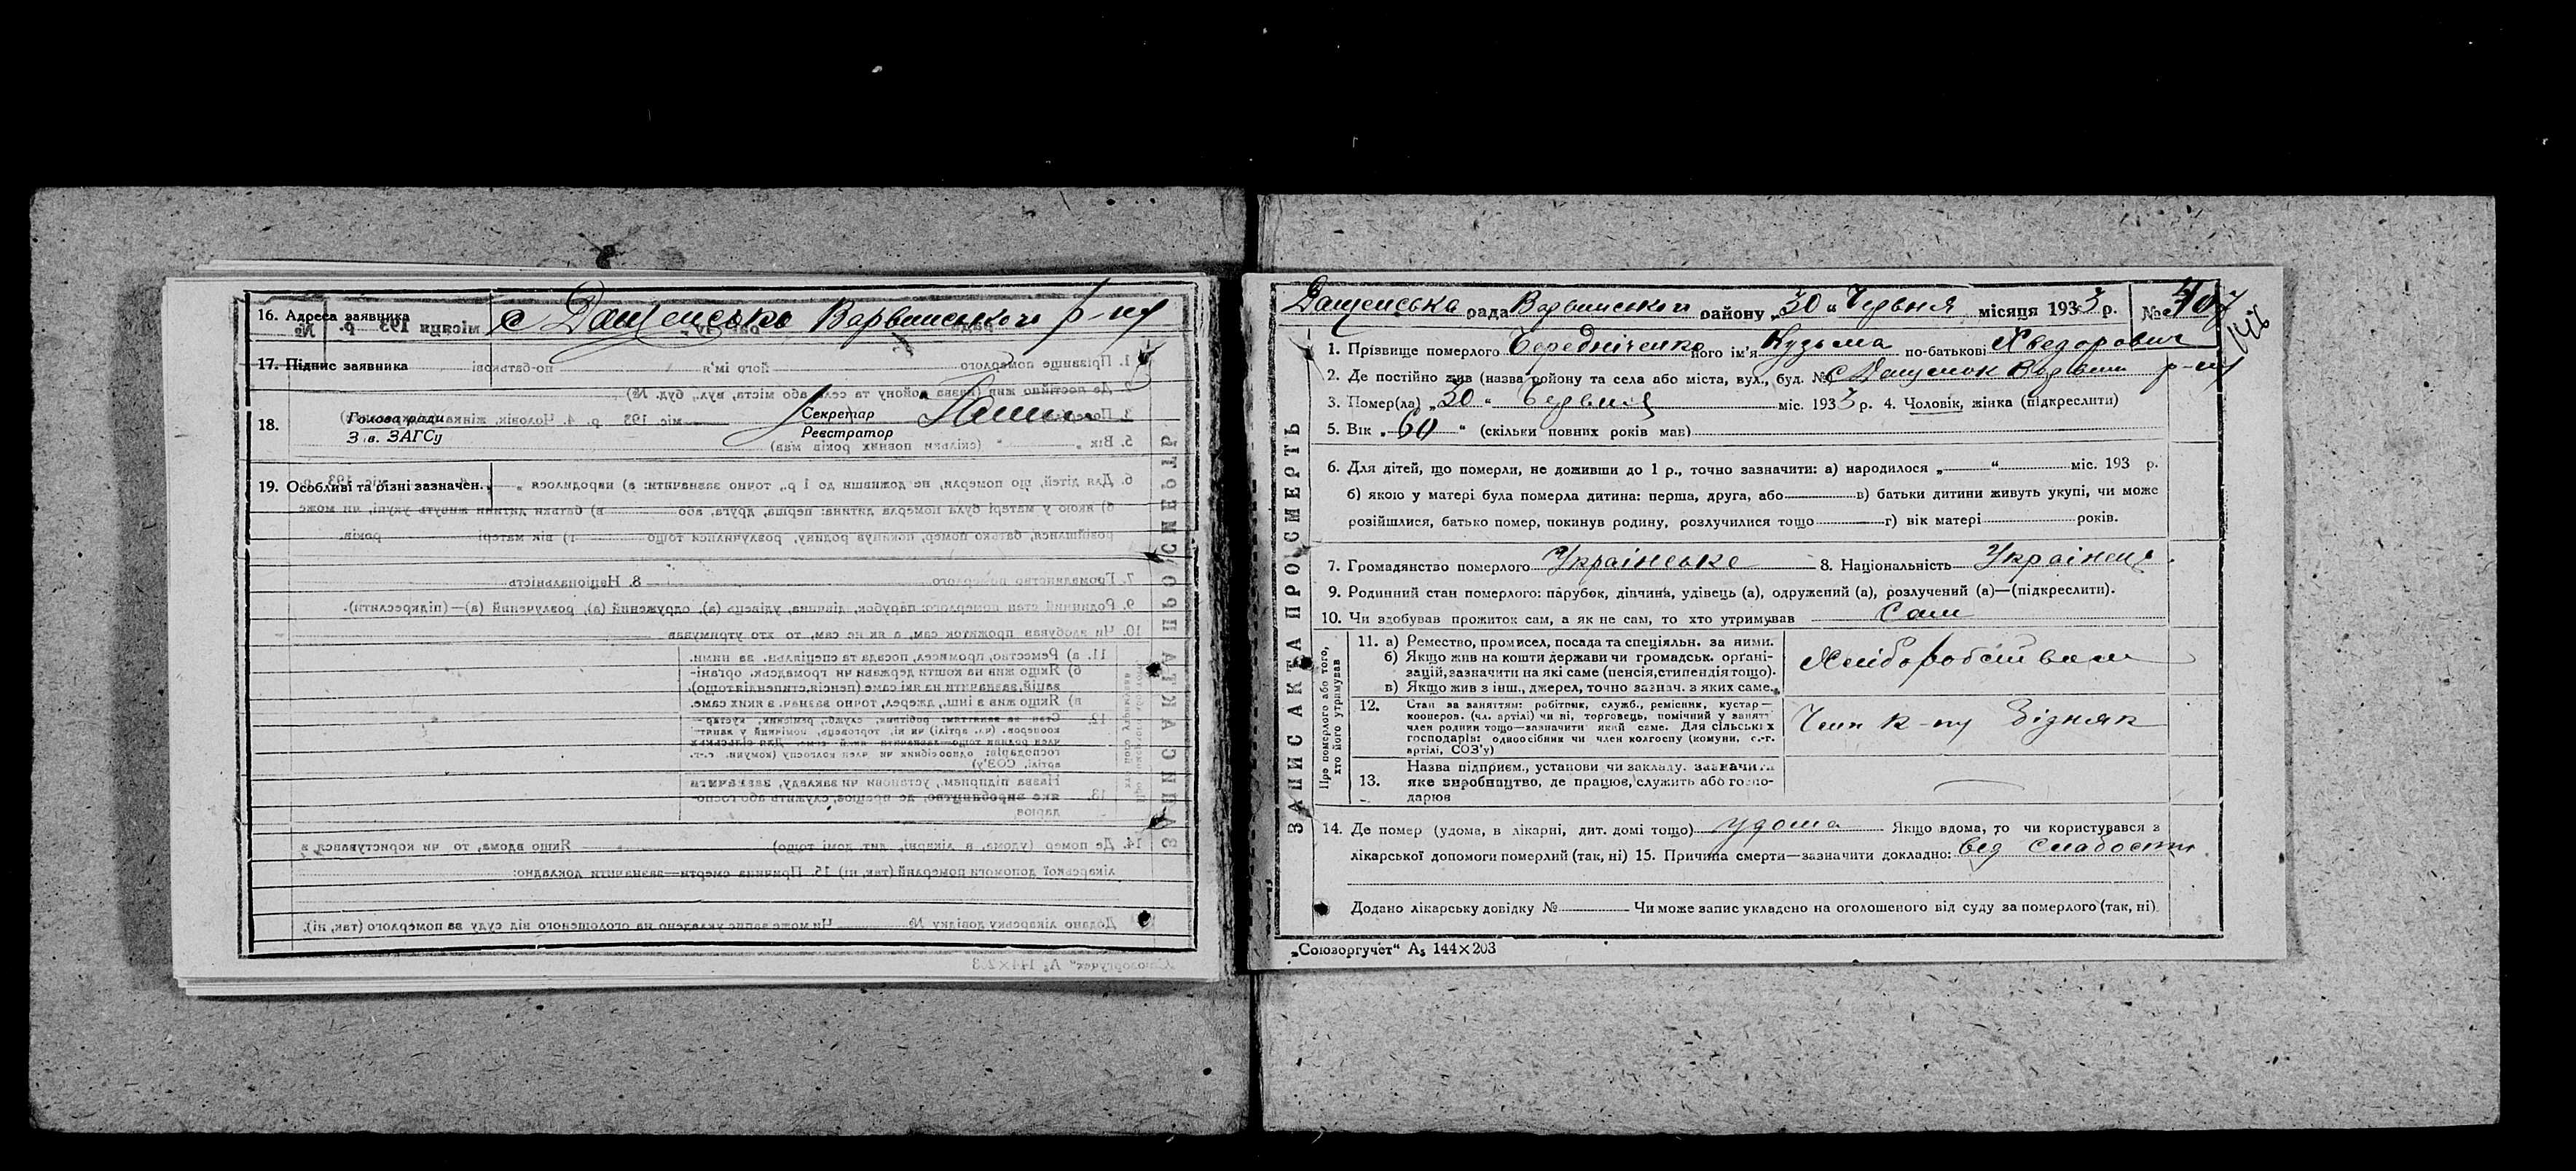 16. Адреса заявника с Дащенсько Варвинського р-ну
17. Підпис заявника
18. Голова ради Секретар
Зав. ЗАГСу Реєстратор
19. Особливі та різні зазначен.
Дащенська рада Варвинського району „30“ Червня місяця 1933 р. №
146
1. Прізвище померлого Бередніченко його ім'я Кузьма по-батькові Хведорович
2. Де постійно жив (назва району та села або міста, вул., буд. № с Дащенок Варвин р-ну
3. Помер(ла) „30“ Червня міс. 1933 р. 4. Чоловік, жінка (підкреслити)
5. Вік „60“ (скільки повних років мав)
6. Для дітей, що померли, не доживши до 1 р., точно зазначити: а) народилося „ “ міс. 193 р.
б) якою у матері була померла дитина: перша, друга, або в) батьки дитини живуть укупі, чи може
розійшлися, батько помер, покинув родину, розлучилися тощо г) вік матері років.
7. Громадянство померлого Українське 8. Національність Українець
9. Родинний стан померлого: парубок, дівчина, удівець (а), одружений (а), розлучений (а)—(підкреслити).
10. Чи здобував прожиток сам, а як не сам, то хто утримував Сам
ЗАПИС АКТА ПРО СМЕРТЬ
Про померлого або того, хто його утримував
11. а) Ремество, промисел, посада та спеціяльн. за ними.
б) Якщо жив на кошти держави чи громадськ. органі-
зацій, зазначити на які саме (пенсія, стипендія тощо).
в) Якщо жив з інш., джерел, точно зазнач. з яких саме.
Хліборобством
12. Стан за заняттям: робітник, служб., ремісник, кустар—
кооперов. (чл. артілі) чи ні, торговець, помічний у занятт
член родини тощо—зазначити який саме. Для сільських
господарів: одноосібник чи член колгоспу (комуни, с.-г.
артілі, СОЗ'у)
Член к-пу Бідняк
13. Назва підприєм., установи чи закладу, зазначити
яке виробництво, де працює, служить або госпо-
дарює
14. Де помер (удома, в лікарні, дит. домі тощо) удома Якщо вдома, то чи користувався з
лікарської допомоги померлий (так, ні) 15. Причина смерти—зазначити докладно: від слабости
Додано лікарську довідку № Чи може запис укладено на оголошеного від суду за померлого (так, ні).
„Союзоргучет“ А₅ 144×203